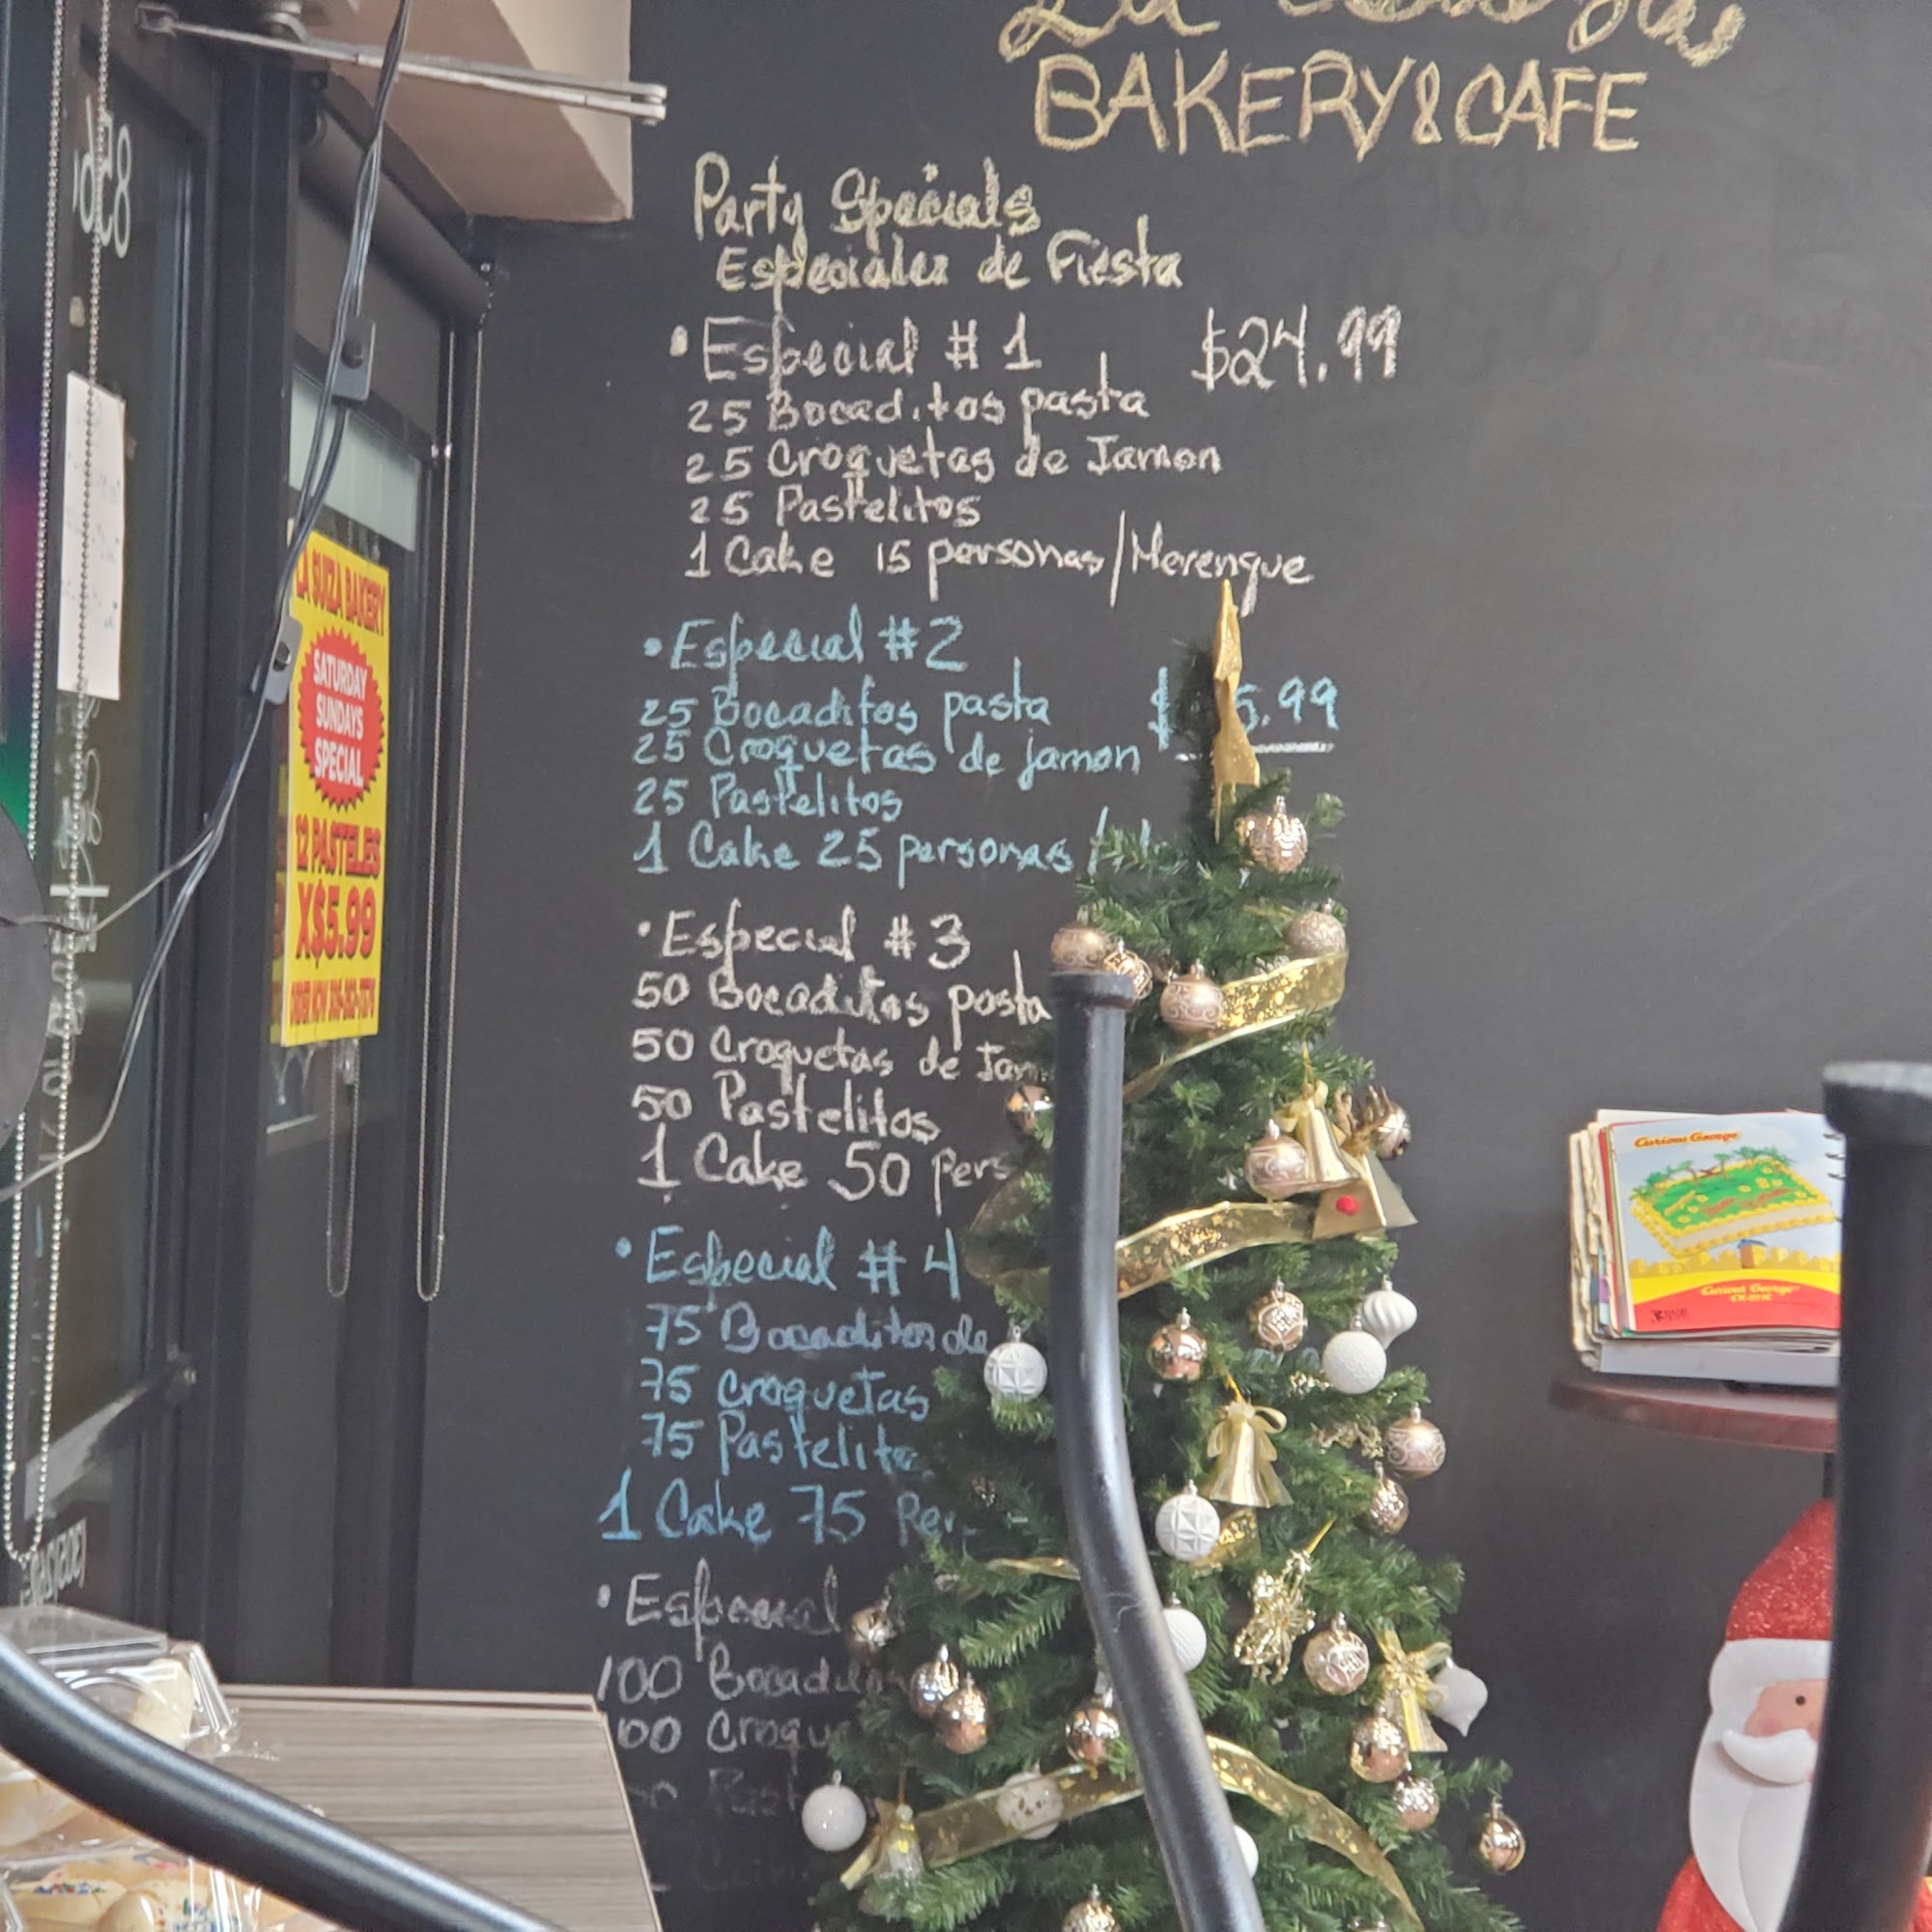 BAKERY & CAFE
Party Specials
Especiales de Fiesta
• Especial # 1 $24.99
25 Bocaditos pasta
25 Croquetas de Jamon
25 Pastelitos
1 Cake 15 personas/Merengue
• Especial #2
25 Bocaditos pasta $ 5.99
25 Croquetas de jamon
25 Pastelitos
1 Cake 25 personas /
• Especial #3
50 Bocaditos pasta
50 Croquetas de Jam
50 Pastelitos
1 Cake 50 pers
• Especial # 4
75 Bocaditos de
75 croquetas
75 Pastelito
1 Cake 75 Per
• Especial
100 Bocaditos
00 Croqu
Past
LA SUIZA BAKERY
SATURDAY
SUNDAYS
SPECIAL
12 PASTELES
X$5.99
Curious George
Curious George